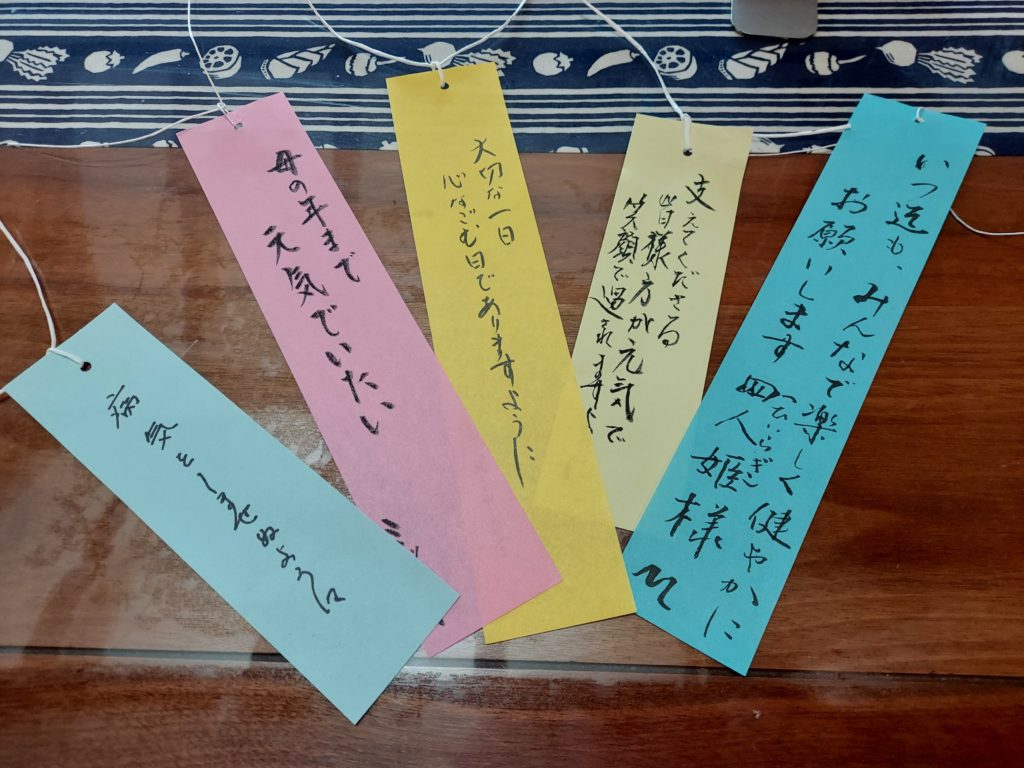 病気をしませぬように
母の年まで
元気でいたい
大切な一日
心なごむ日でありますように
支えてくださる
皆様方が元気で
笑顔で過せますよ
いつ迄も、みんなで楽しく健やかに
お願いします 四人姫様
ひいらぎ